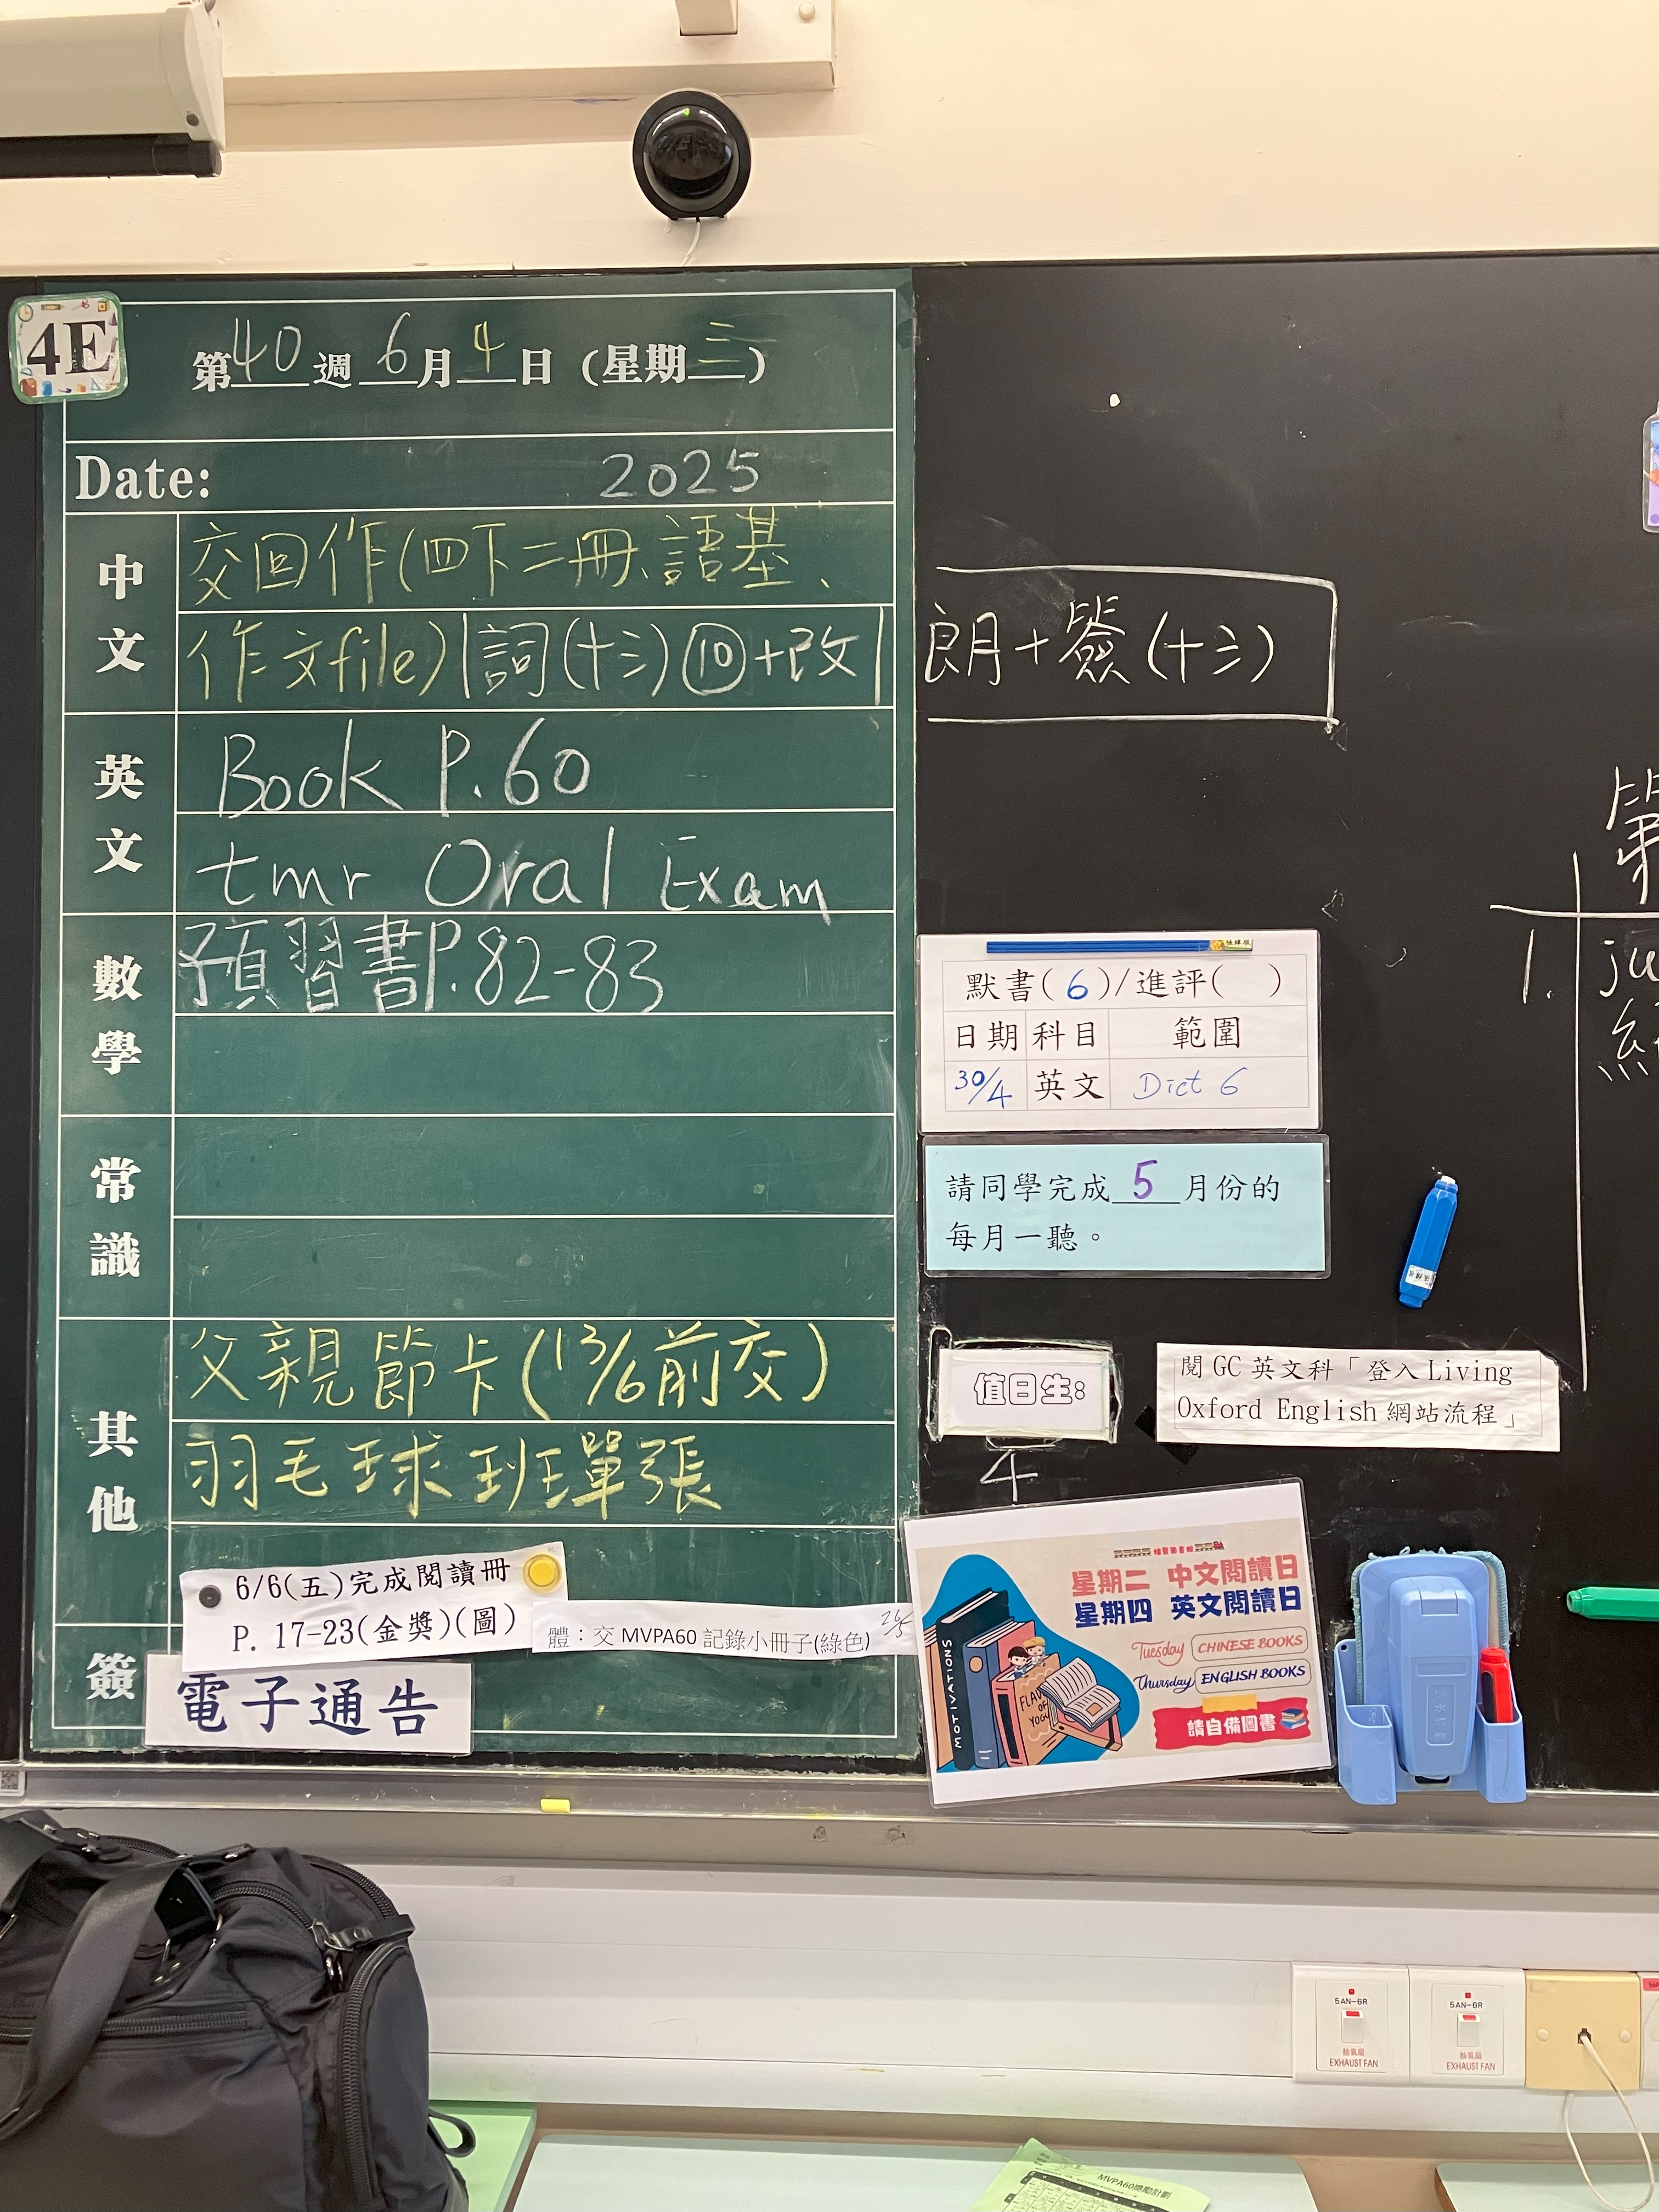 4E
第40週 6月4日 (星期三)
Date: 2025
中文
交回作(四下二冊、語基、
作文file) 詞(十三)⑩+改
朗+簽(十三)
英文
Book P.60
tmr Oral Exam
數學
預習書P.82-83
常識
其他
父親節卡(13/6前交)
羽毛球班單張
6/6(五)完成閱讀冊
P. 17-23(金獎)(圖)
體：交 MVPA60 記錄小冊子(綠色) 26/5
簽
電子通告
默書(6)/進評( )
日期 科目 範圍
30/4 英文 Dict 6
請同學完成 5 月份的
每月一聽。
值日生:
4
閱 GC 英文科「登入 Living
Oxford English 網站流程」
星期二 中文閱讀日
星期四 英文閱讀日
Tuesday CHINESE BOOKS
Thursday ENGLISH BOOKS
請自備圖書
MOTIVATIONS
第
1. ju
5AN-6R
抽氣扇
EXHAUST FAN
5AN-6R
抽氣扇
EXHAUST FAN
MVPA60獎勵計劃